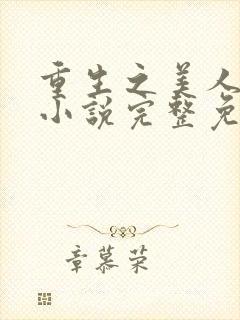 重生之美人
小说完整免
章慕荣